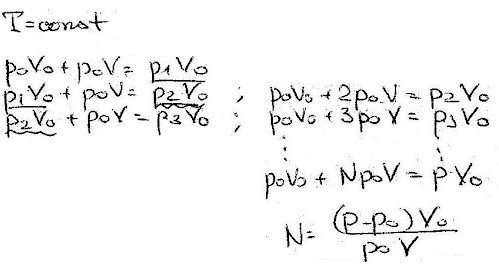 T=const
p₀V₀ + p₀V = p₁V₀
p₁V₀ + p₀V = p₂V₀ ; p₀V₀ + 2p₀V = p₂V₀
p₂V₀ + p₀V = p₃V₀ ; p₀V₀ + 3p₀V = p₃V₀
p₀V₀ + Np₀V = pV₀
N = (p-p₀)V₀ / p₀V